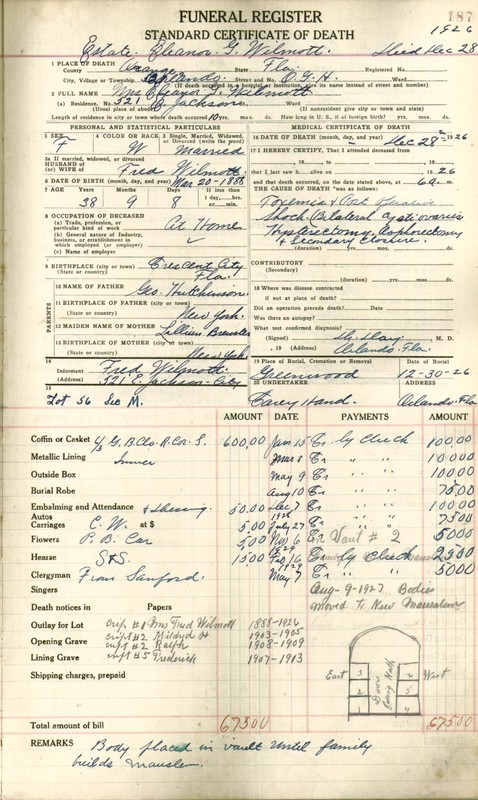 187
FUNERAL REGISTER
1926
STANDARD CERTIFICATE OF DEATH
Estate. Eleanor G. Wilmott. Died Dec 28
1 PLACE OF DEATH
County Orange State Fla. Registered No.
City, Village or Township Orlando Street and No. O.G.H. Ward
(If death occurred in a hospital or institution, give its name instead of street and number)
2 FULL NAME Mrs Eleanor G. Wilmott
(a) Residence, No. 521 E Jackson Ward
(Usual place of abode) (If nonresident give city or town and state)
Length of residence in city or town where death occurred 10 yrs. mos. ds. How long in U. S., if of foreign birth? yrs. mos. ds.
PERSONAL AND STATISTICAL PARTICULARS
3 SEX 4 COLOR OR RACE 5 Single, Married, Widowed, or Divorced (write the word)
F W Married
5a If married, widowed, or divorced
HUSBAND of
(or) WIFE of Fred Wilmott
6 DATE OF BIRTH (month, day, and year) Mar 20-1888
7 AGE Years Months Days If less than 1 day, hrs. or min.
38 9 8
8 OCCUPATION OF DECEASED
(a) Trade, profession, or particular kind of work At Home
(b) General nature of Industry, business, or establishment in which employed (or employer)
(c) Name of employer
9 BIRTHPLACE (city or town) Crescent City
(State or country) Fla.
PARENTS
10 NAME OF FATHER Geo. Hutchinson
11 BIRTHPLACE OF FATHER (city or town)
(State or country) New York.
12 MAIDEN NAME OF MOTHER Lillian Brewster
13 BIRTHPLACE OF MOTHER (city or town)
(State or country) New York
14
Informant Fred Wilmott
(Address) 521 E. Jackson-City
15
Lot 56 Sec M.
MEDICAL CERTIFICATE OF DEATH
16 DATE OF DEATH (month, day, and year) Dec 28 1926
17 I HEREBY CERTIFY, That I attended deceased from
, 19 to , 19
that I last saw h alive on , 1926
and that death occurred, on the date stated above, at 6 a. m.
THE CAUSE OF DEATH was as follows:
Toxemia & Post Operative
Shock (Bilateral cystic ovaries
Hysterectomy, Oophorectomy
& Secondary Closure.
(duration) yrs. mos. ds.
CONTRIBUTORY
(Secondary)
(duration) yrs. mos. ds.
18 Where was disease contracted
if not at place of death?
Did an operation precede death? Date
Was there an autopsy?
What test confirmed diagnosis?
(Signed) M. D.
, 19 (Address) Orlando Fla.
19 Place of Burial, Cremation or Removal Date of Burial
Greenwood 12-30-26
20 UNDERTAKER ADDRESS
Carey Hand. Orlando. Fla
AMOUNT DATE PAYMENTS AMOUNT
Coffin or Casket 600.00 Jan 15 Cr by check 100.00
Metallic Lining Inner Mar 8 Cr " " 100.00
Outside Box May 9 Cr " " 100.00
Burial Robe Aug 10 Cr 75.00
Embalming and Attendance & Dressing 50.00 Dec 7 Cr " " 100.00
Autos
Carriages C. W. at $ 5.00 1928 July 27 Cr " " 75.00
Flowers P. B. Car 5.00 Nov 6 Cr Vault # 2 50.00
Hearse S&S. 15.00 1929 Feb 16 Cr by check 25.00
Clergyman From Sanford. 1929 May 7 Cr 50.00
Singers Aug-9-1927 Bodies
moved to New Mausoleum
Death notices in Papers
Outlay for Lot cript #1 Mrs Fred Wilmott 1888-1926
Opening Grave cript #2 Mildred H 1903-1905
cript #2 Ralph 1908-1909
Lining Grave cript #5 Frederick 1907-1913
Shipping charges, prepaid
East 3 4 West
2 5
1
Door
Facing North
Total amount of bill 675.00 675.00
REMARKS Body placed in vault until family
builds mausoleum.